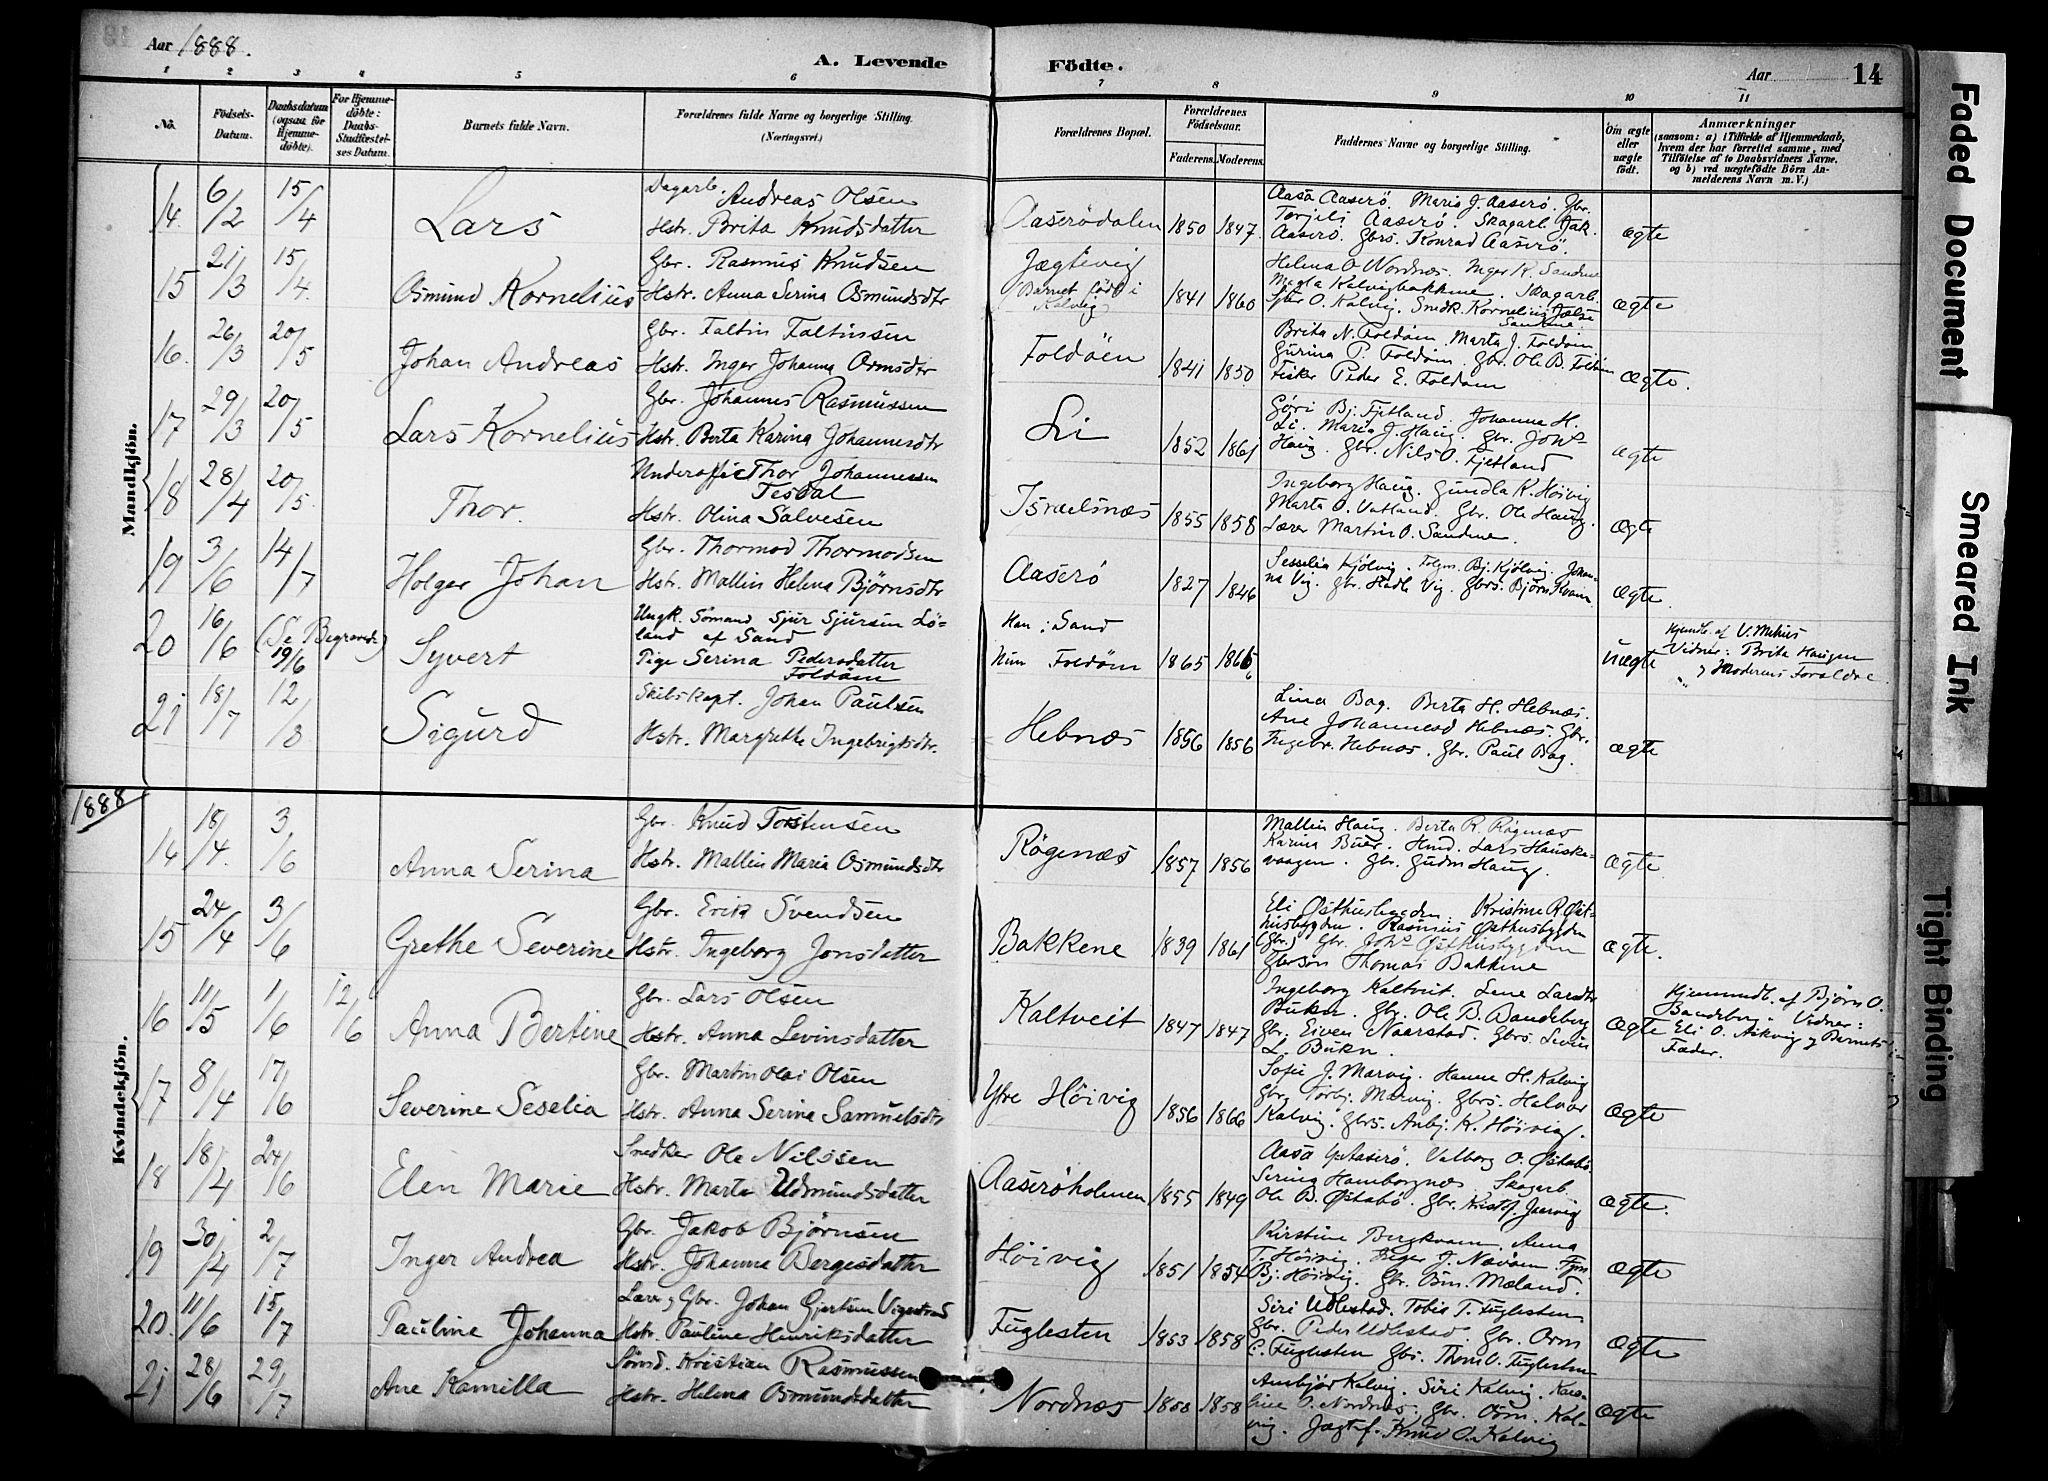 Aar 1888.
A. Levende Födte.
Aar 14
1 2 3 4 5 6 7 8 9 10 11
No. Födsels-Datum. Daabsdatum (ogsaa för Hjemme-döbte). For Hjemme-döbte: Daabs-Stadfæstel-ses Datum. Barnets fulde Navn. Forældrenes fulde Navne og borgerlige Stilling. (Næringsvei.) Forældrenes Bopæl. Forældrenes Födselsaar. Faderens. Moderens. Faddernes Navne og borgerlige Stilling. Om ægte eller uægte födt. Anmærkninger (saasom: a) i Tilfælde af Hjemmedaab, hvem der har forrettet samme, med Tilföielse af to Daabsvidners Navne, og b) ved uægtefödte Börn An-melderens Navn m. V.)
Mandkjön.
14. 6/2 15/4 Lars Dagarb. Andreas Olsen
Hstr. Brita Knudsdatter Aaserödalen 1850 1847 Aasa Aaserö. Maria J. Aaserö. Gbr.
Torjels Aaserö. Skagarb. Jak.
Aaserö. Gbrs. Konrad Aaserö. ægte
15 21/3 15/4. Osmund Kornelius Gbr. Rasmus Knudsen
Hstr. Anna Serina Osmundsdtr Jægtevig
(Barnet född i
Kalvig) 1841 1860 Helena O. Nordnæs. Inger K. Sandene
Kalvigbakkene. Skagarb.
Sjur O. Kalvig. Snedk. Kornelius Jelse
Sandene. ægte
16. 26/3 20/5 Johan Andreas Gbr. Faltin Faltinsen
Hstr. Inger Johanna Ormsdtr Foldöen 1841 1850 Brita N. Foldöen. Marta J. Foldöen
Gurina P. Foldöen. Gbr. Ole B. Foldöen
Fisker Peder E. Foldöen ægte.
17 29/3 20/5 Lars Kornelius Gbr. Johannes Rasmussen
Hstr. Berta Karina Johannesdtr Li 1852 1861 Göri Bj. Fjetland. Johanna H.
Li. Maria J. Haug. Gbr. Johs
Haug. Gbr. Nils O. Fjetland ægte
18 28/4 20/5. Thor. Underoffic Thor Johannessen
Tesdal
Hstr. Olina Salvesen Israelsnæs 1855 1858 Ingeborg Haug. Gundla K. Höivig
Marta O. Vatland. Gbr. Ole Haug.
Lærer Martin O. Sandene. ægte
19 3/6 14/7 Holger Johan Gbr. Thormod Thormodsen
Hstr. Mallin Helena Björnsdtr Aaserö 1827 1846 Sesselia Kjölvig. Folgm. Bj. Kjölvig. Johan-
na Vig. Gbr. Hadle Vig. Gbrs. Björn Kvam ægte.
20 16/6 (Se Begravede) 19/6 Syvert Ungk. Sömand Sjur Sjursen Lö-
land af Sand
Pige Serina Pedersdatter
Foldöen Han: Sand
Hun Foldöen 1865 1866 uægte Hjemdb. af V. Mehus
Vidner: Brita Haugen
og Moderens Forældre
21 18/7 12/8 Sigurd Skibskapt. Johan Paulsen
Hstr. Margrethe Ingebrigtsdtr. Hebnæs 1856 1856 Lina Bag. Berta H. Hebnæs.
Ane Johannesd Hebnæs. Gbr.
Ingebr. Hebnæs. Gbr. Paul Bag. ægte
1888
Kvindekjön.
14 18/4. 3/6 Anna Serina Gbr. Knud Torstensen
Hstr. Mallin Maria Osmundsdtr Rögenæs 1857 1856 Mallin Haug. Berta R. Rögenæs
Karina Buer. Hmd. Lars Hauske-
vaagen. Gbr. Gudm Haug. ægte
15 24/4 3/6 Grethe Severine Gbr. Erik Svendsen
Hstr. Ingeborg Jonsdatter Bakkene 1839 1861 Eli Østhusbygden. Kristine R. Øst-
husbygden. Rasmus Østhusbygden
(Gbr.) Gbr. Johs Østhusbygden
Gbrsön Thomas Bakkene ægte.
16 11/5 1/6 12/6 Anna Bertine Gbr. Lars Olsen
Hstr. Anna Levinsdatter Kaltveit 1847 1847 Ingeborg Kaltveit. Lene Larsdtr
Buken. Gbr. Ole B. Bandeberg
Gbr. Eiven Naarstad. Gbrs. Levin
L. Bukn. ægte Hjemmedb. af Björn O.
Bandeberg. Vidner:
Eli O. Askvig og Barnets
Fader.
17 8/4 17/6 Severine Seselia Gbr. Martin Olai Olsen
Hstr. Anna Serina Samuelsdtr Ytre Höivig 1856 1866 Sofie J. Marvig. Hanne H. Kalvig
Gbr. Torbj. Marvig. Gbrs. Halvor
Kalvig. Gbrs. Anbj. K. Höivig. ægte
18 18/4 24/6 Elen Marie Snedker Ole Nilssen
Hstr. Marta Udmundsdatter Aaseröholmen 1855 1849 Aasa Aaserö. Valborg O. Østabö.
Serina Hamborgnæs. Skagarb.
Ole B. Østabö. Gbr. Kristof. Jarvig ægte.
19 30/4 2/7 Inger Andrea Gbr. Jakob Björnsen
Hstr. Johanna Bergesdatter Höivig 1851 1854 Kirstine Bergkvam. Anna
T. Höivig. Inger J. Nævöen.
Bj. Höivig. Gbr. Mæland. ægte
20. 11/6 15/7 Pauline Johanna Lærer og Gbr. Johan Gjertsen Vigestrad
Hstr. Pauline Henriksdatter Fuglesten 1853 1858 Siri Udlestad. Tobia T. Fuglesten
Gbr. Peder Udlestad. Gbr. Orm
E. Fuglesten Gbs. Thom. O. Fuglesten ægte
21 28/6 29/7 Ane Kamilla Sömd. Kristian Rasmussen
Hstr. Helena Osmundsdatter Nordnæs 1858 1858 Ambjör Kalvig. Siri Kalvig.
O. Nordnæs. Gbr. Osm. Kal-
vig. Jægtef. Knud O. Kalvig ægte
Faded Document
Smeared Ink
Tight Binding